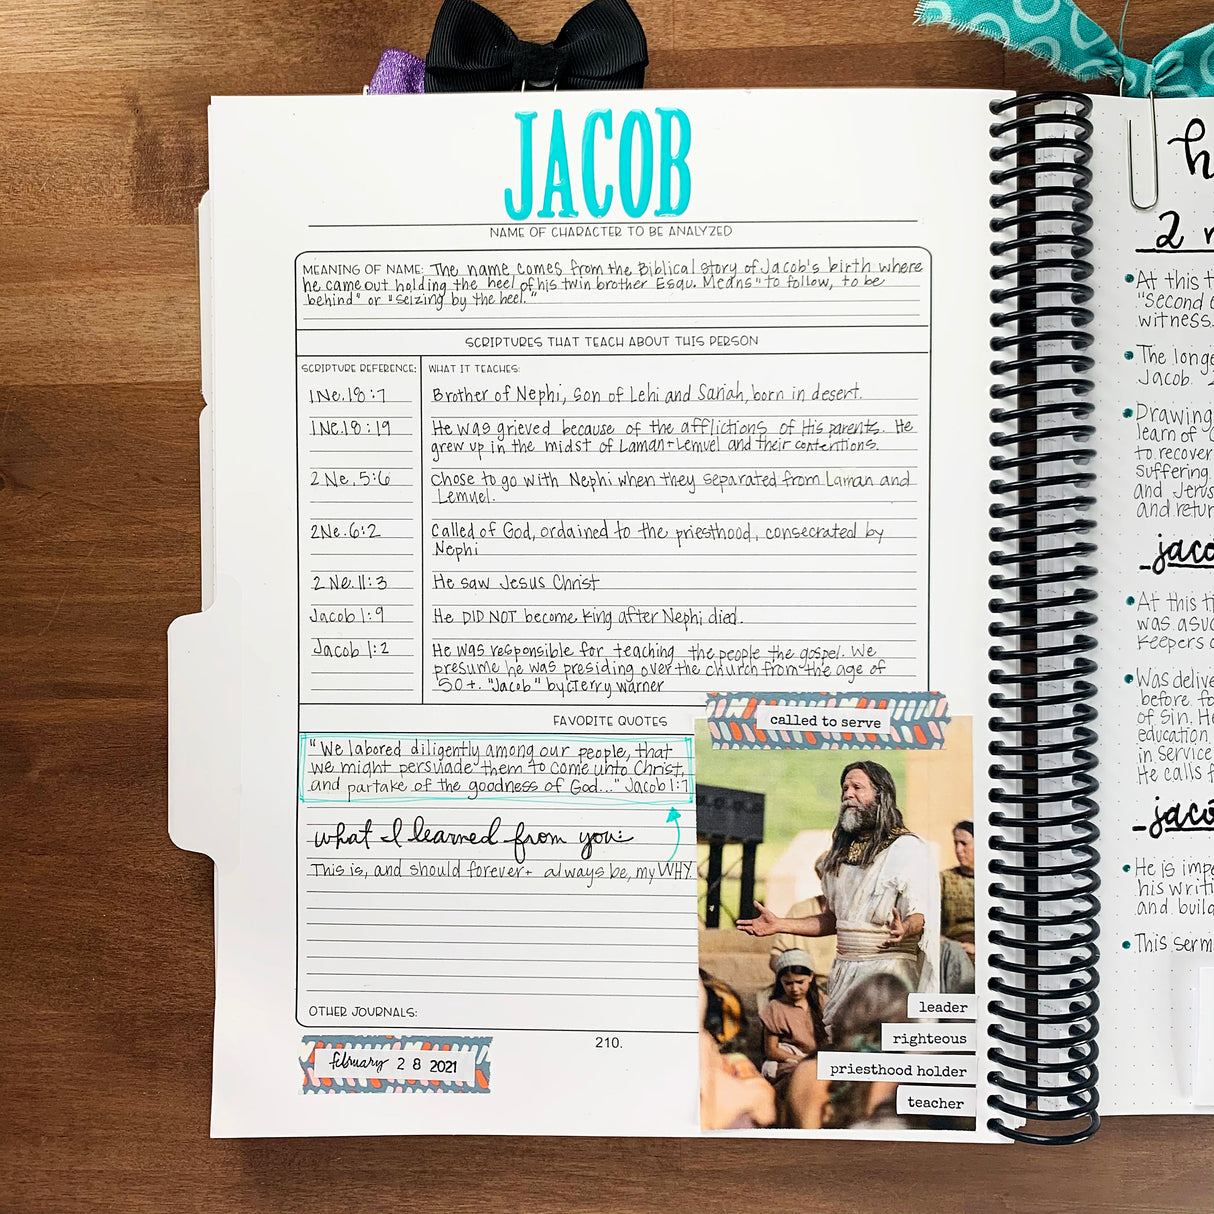 JACOB
NAME OF CHARACTER TO BE ANALYZED
MEANING OF NAME: The name comes from the Biblical story of Jacob's birth where
he came out holding the heel of his twin brother Esau. Means "to follow, to be
behind" or "seizing by the heel."
SCRIPTURES THAT TEACH ABOUT THIS PERSON
SCRIPTURE REFERENCE: WHAT IT TEACHES:
1 Ne. 18:7 Brother of Nephi, son of Lehi and Sariah, born in desert.
1 Ne. 18:19 He was grieved because of the afflictions of His parents. He
grew up in the midst of Laman + Lemuel and their contentions.
2 Ne. 5:6 Chose to go with Nephi when they separated from Laman and
Lemuel.
2 Ne. 6:2 Called of God, ordained to the priesthood, consecrated by
Nephi
2 Ne. 11:3 He saw Jesus Christ
Jacob 1:9 He DID NOT become king after Nephi died.
Jacob 1:2 He was responsible for teaching the people the gospel. We
presume he was presiding over the church from the age of
50+. "Jacob" by C Terry Warner
FAVORITE QUOTES
called to serve
"We labored diligently among our people, that
we might persuade them to come unto Christ,
and partake of the goodness of God..." Jacob 1:7
what I learned from you:
This is, and should forever + always be, my WHY.
OTHER JOURNALS:
210.
february 28 2021
leader
righteous
priesthood holder
teacher
h
2
At this t
"Second
witness.
The longe
Jacob. 2
Drawing
learn of
to recover
suffering.
and Jerus
and retur
jaco
At this ti
was a suc
keepers o
Was delive
before fo
of sin. He
education
in service
He calls f
jaco
He is impo
his writi
and build
This serm